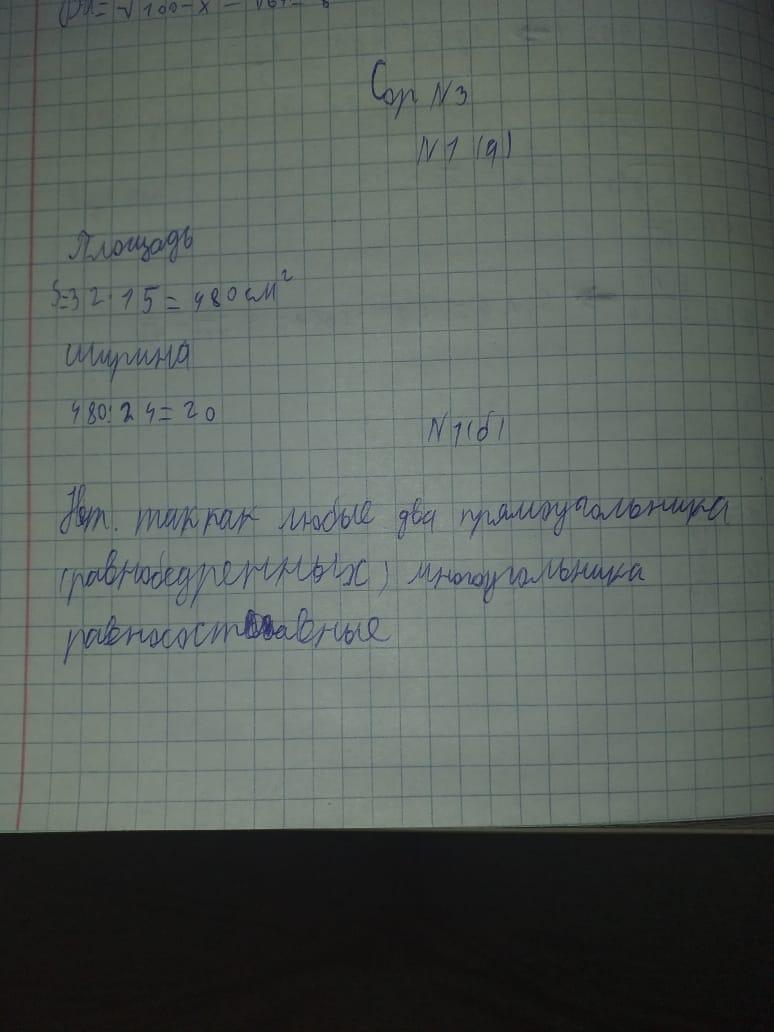 Сор N3
N1 (а)
Площадь
S=32·15=480см²
ширина
480:24=20
N1(б)
Нет. так как любые два прямоугольника
(равнобедренных) многоугольника
равносоставные